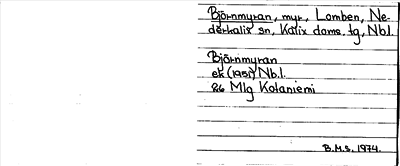 Björnmyran, myr, Lomben, Ne-
derkalix sn, Kalix doms. tg, Nbl.
Björnmyran
ek (1951) Nb.l.
86 Mlg Kotaniemi
B.M.S. 1974.